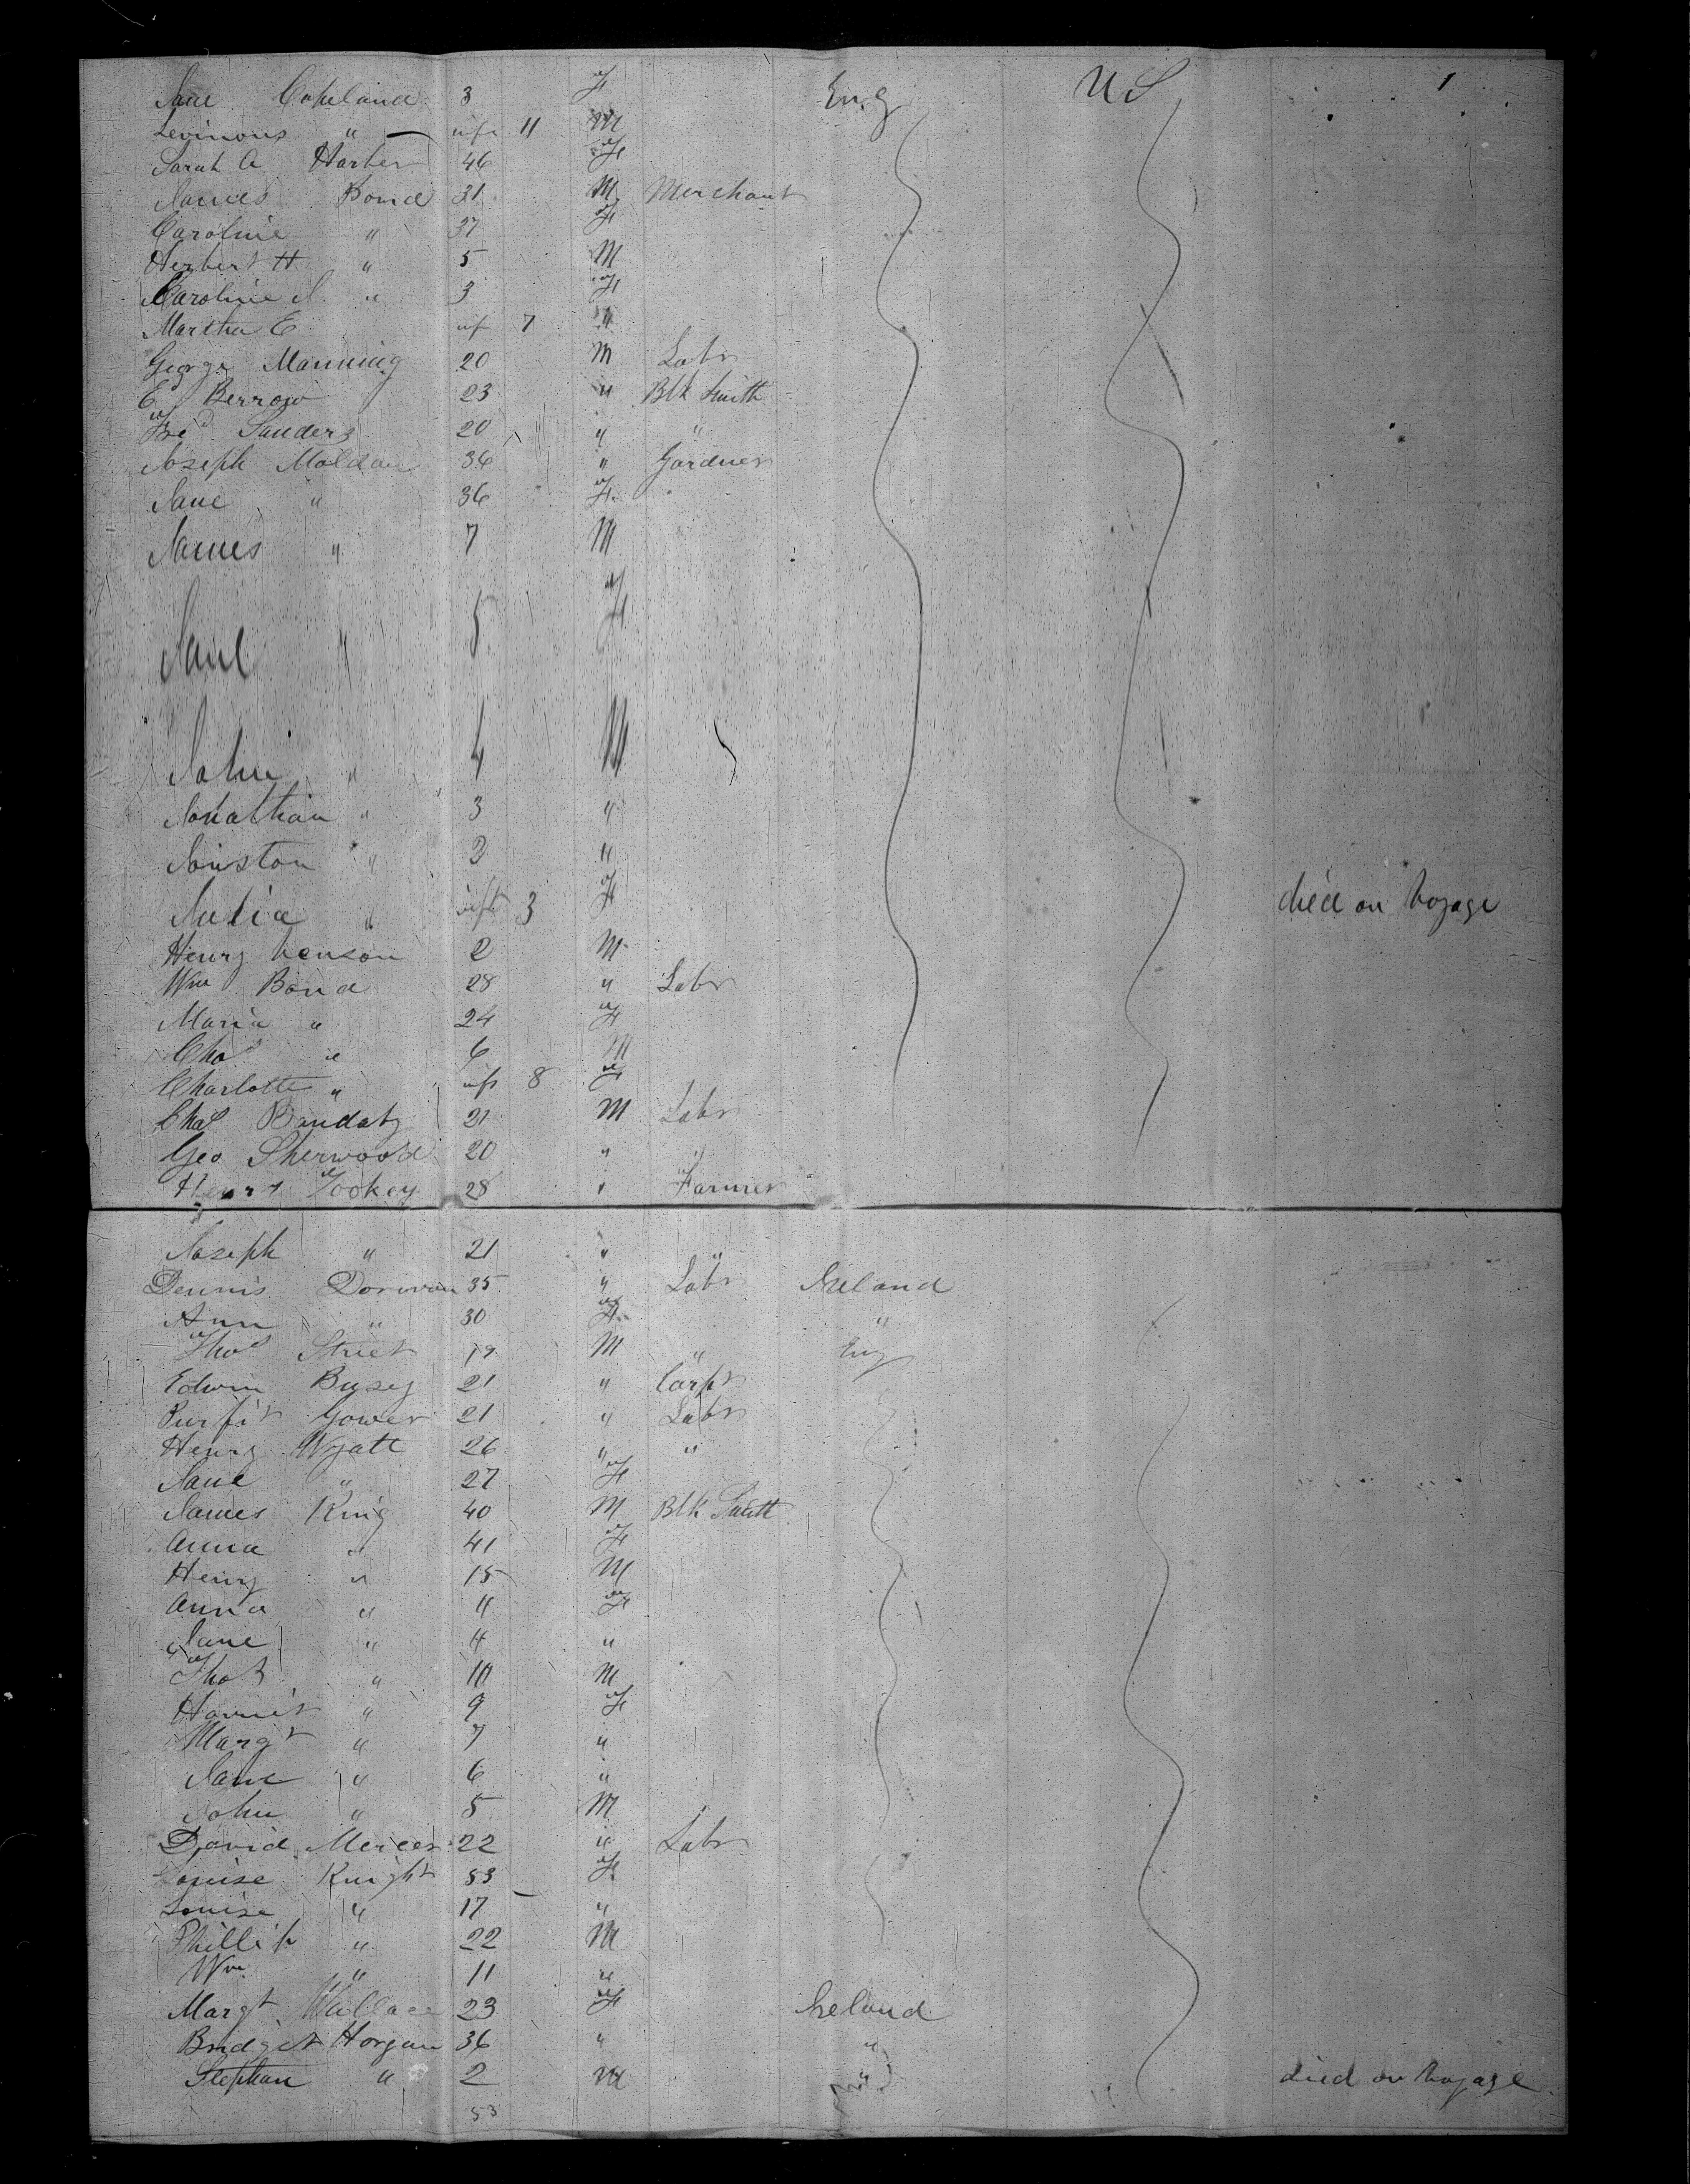 Jane Copeland 3 F Eng U S 1
Levinous " inft 11 M
Sarah A Harber 46 F
James Bond 31 M Merchant
Caroline " 37 F
Herbert H " 5 M
Caroline " 3 F
Martha E inf 7 "
George Manning 20 M Labr
E Berrow 23 " Blk Smith
Fred Sanders 20 " "
Joseph Moldan 36 " Gardner
Jane " 36 F
James " 7 M
Jane " 5 F
John " 4 M
Jonathan " 3 "
Joinston " 2 "
Julia " inft 3 F died on Voyage
Henry 2 M
Wm Bond 28 " Labr
Maria " 24 F
Chas " 6 M
Charlotte " inft 8 F
Chas 21 M Labr
Geo Sherwood 20 " "
Henry Tookey 28 " Farmer
Joseph " 21 " "
Dennis Dorwan 35 " Labr Ireland
Ann " 30 F "
Thos Street 19 M " Eng
Edwin Busey 21 " Carpr
Purfit Gower 21 " Labr
Henry Wyatt 26 " "
Jane " 27 F
James King 40 M Blk Smith
Anna " 41 F
Henry " 15 M
Anna " 11 F
Jane " 4 "
Thos " 10 M
Harriet " 9 F
Margt " 7 "
Jane " 6 "
John " 5 M
David Mercer 22 " Labr
Louise Knight 53 F
Louise " 17 "
Phillip " 22 M
Wm " 11 "
Margt Wallace 23 F Ireland
Bridget Horgan 36 " "
Stephan " 2 M " died on Voyage
53